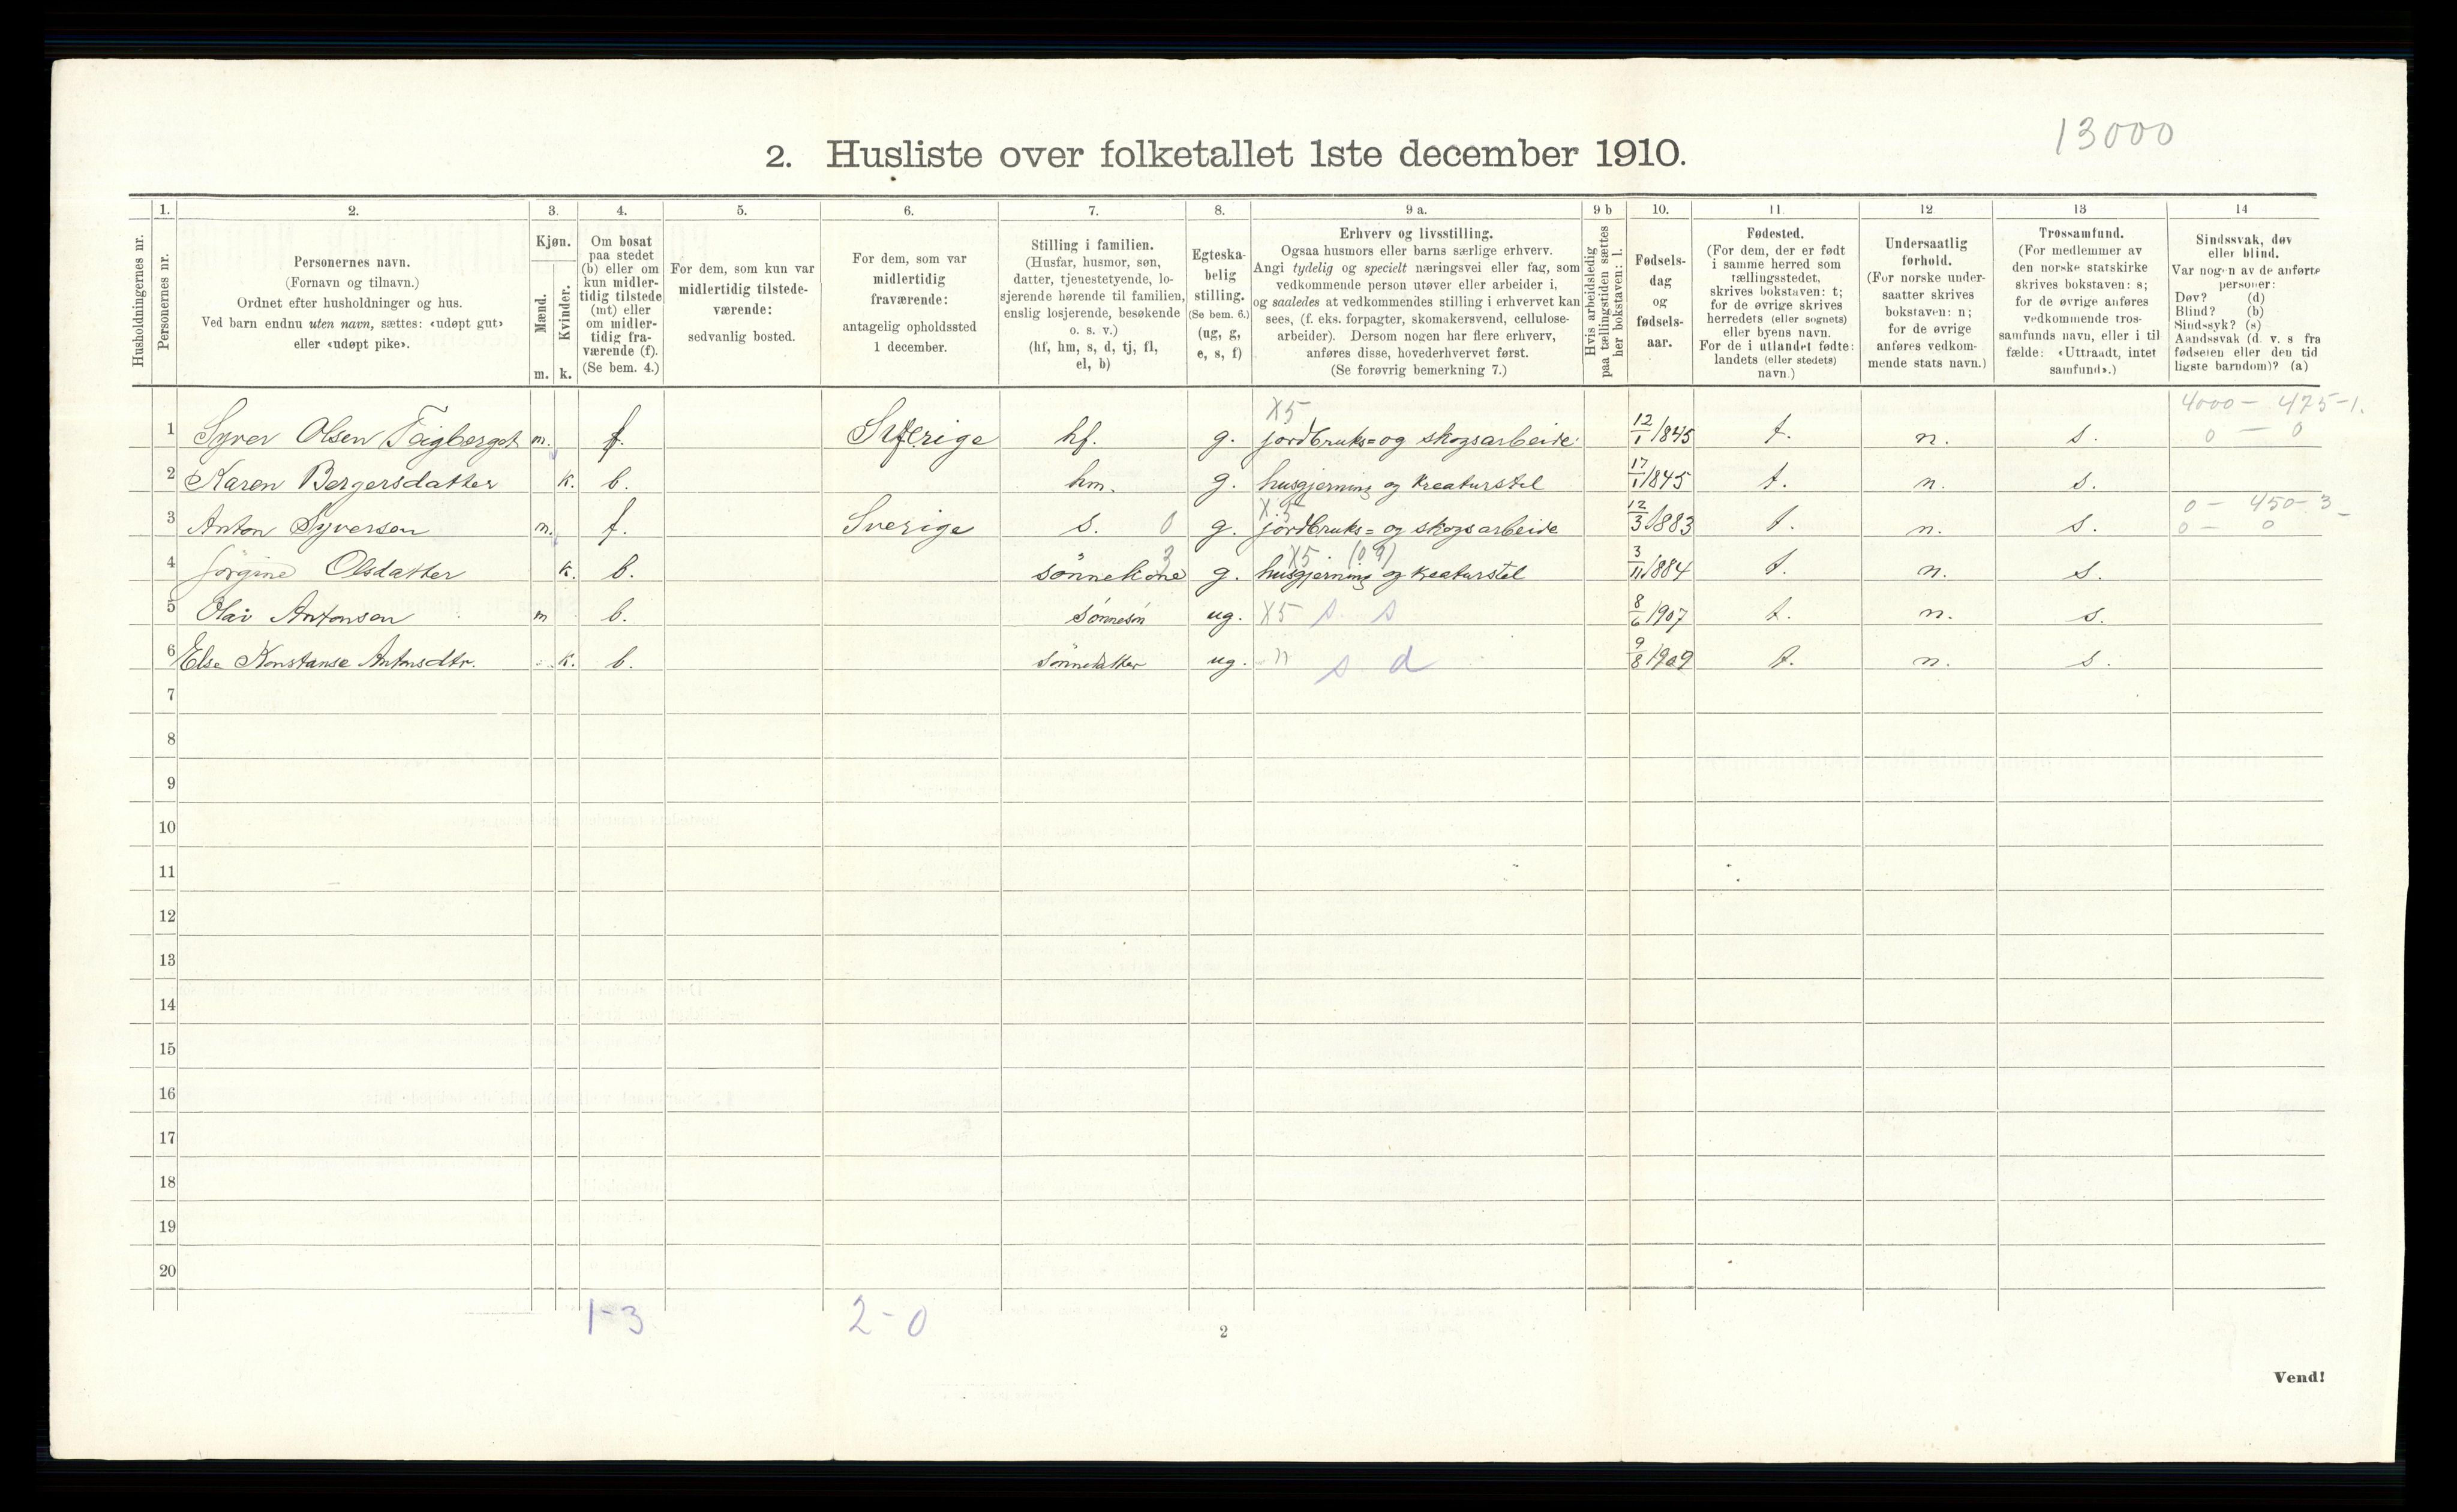 13000
2. Husliste over folketallet 1ste december 1910.
1. 2. 3. 4. 5. 6. 7. 8. 9 a. 9 b 10. 11. 12 13 14
Husholdningernes nr.
Personernes nr.
Personernes navn.
(Fornavn og tilnavn.)
Ordnet efter husholdninger og hus.
Ved barn endnu uten navn, sættes: «udøpt gut»
eller «udøpt pike».
Kjøn.
Mænd.
Kvinder.
m. k.
Om bosat
paa stedet
(b) eller om
kun midler-
tidig tilstede
(mt) eller
om midler-
tidig fra-
værende (f).
(Se bem. 4.)
For dem, som kun var
midlertidig tilstede-
værende:
sedvanlig bosted.
For dem, som var
midlertidig
fraværende:
antagelig opholdssted
1 december.
Stilling i familien.
(Husfar, husmor, søn,
datter, tjenestetyende, lo-
sjerende hørende til familien,
enslig losjerende, besøkende
o. s. v.)
(hf, hm, s, d, tj, fl,
el, b)
Egteska-
belig
stilling.
(Se bem. 6.)
(ug, g,
e, s, f)
Erhverv og livsstilling.
Ogsaa husmors eller barns særlige erhverv.
Angi tydelig og specielt næringsvei eller fag, som
vedkommende person utøver eller arbeider i,
og saaledes at vedkommendes stilling i erhvervet kan
sees, (f. eks. forpagter, skomakersvend, cellulose-
arbeider). Dersom nogen har flere erhverv,
anføres disse, hovederhvervet først.
(Se forøvrig bemerkning 7.)
Hvis arbeidsledig
paa tællingstiden sættes
her bokstaven: l.
Fødsels-
dag
og
fødsels-
aar.
Fødested.
(For dem, der er født
i samme herred som
tællingsstedet,
skrives bokstaven: t;
for de øvrige skrives
herredets (eller sognets)
eller byens navn.
For de i utlandet fødte:
landets (eller stedets)
navn.)
Undersaatlig
forhold.
(For norske under-
saatter skrives
bokstaven: n;
for de øvrige
anføres vedkom-
mende stats navn.)
Trossamfund.
(For medlemmer av
den norske statskirke
skrives bokstaven: s;
for de øvrige anføres
vedkommende tros-
samfunds navn, eller i til
fælde: «Uttraadt, intet
samfund».)
Sindssvak, døv
eller blind.
Var nogen av de anførte
personer:
Døv? (d)
Blind? (b)
Sindssyk? (s)
Aandssvak (d. v. s fra
fødselen eller den tid
ligste barndom)? (a)
X5 4000 - 475-1.
1 Syver Olsen Teigberget m. f. Sverige hf. g. jordbruks= og skogsarbeide 12/1 1845 t. n. s. 0 - 0
2 Karen Bergersdatter k. b. hm. g. husgjerning og kreaturstel 17/1 1845 t. n. s.
X.5 0 - 450-3
3 Anton Syversen m. f. Sverige s. 0 g. jordbruks= og skogsarbeide 12/3 1883 t. n. s. 0 - 0
3 X5 (09)
4 Jörgine Olsdatter k. b. sönnekone g. husgjerning og kreaturstel 3/11 1884 t. n. s.
5 Olav Antonsen m b. sönnesön ug. X5 s. s 8/6 1907 t. n. s.
6 Else Konstanse Antonsdtr. k. b. sönnedatter ug. " s d 9/8 1909 t. n. s.
7
8
9
10
11
12
13
14
15
16
17
18
19
20
1-3 2-0
2
Vend!